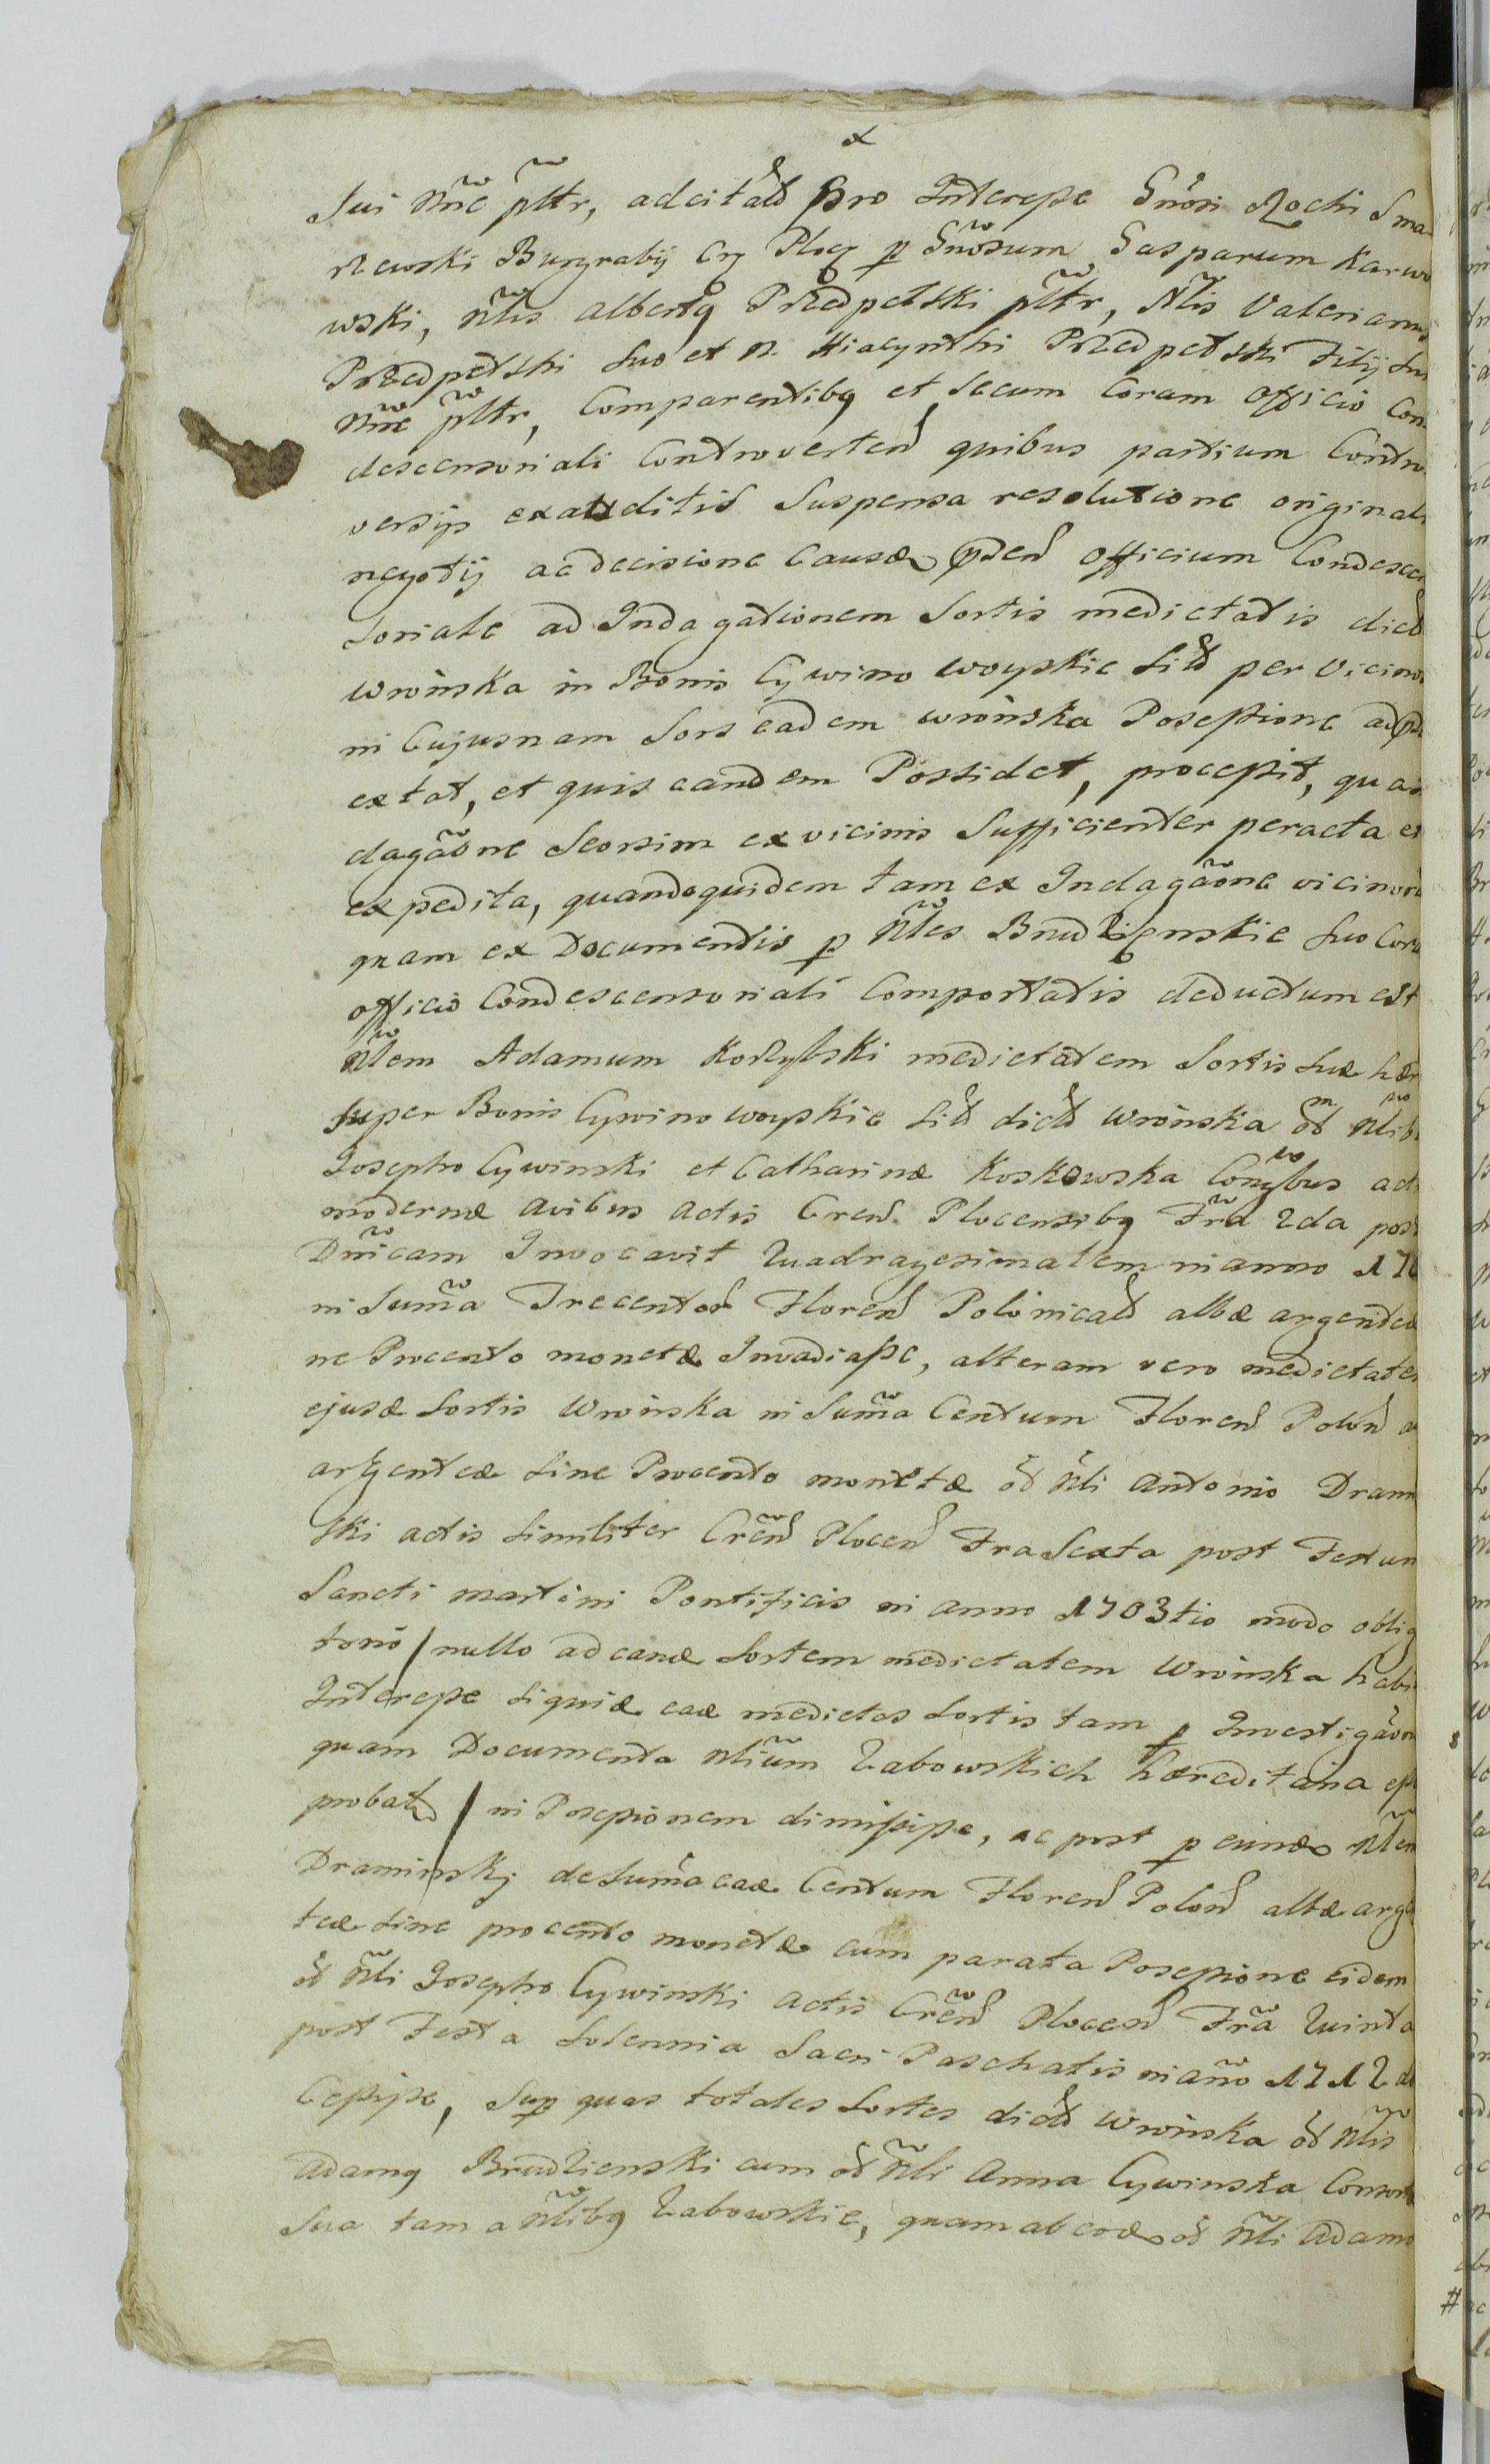 x
sui nñe pltr, adcitatd pro Interesse Gnôsi Rochi Sma
rzewski Burgrabij Cr Ploc p Gnôsum Gasparum Karwo
wski, Nlis Albertg Przedpelski pltr, Nlis Valerianus
Przedpelski suo et N. Hiacynthi Przedpelski Filij sui
nñe pltr, Comparentibg et secum Coram Officio Con
descensoriali Controverten quibus partium Contro
versijs exauditis Suspensa resolutione originali
negotij ac decisione Causæ pden Officium Condescen
soriale ad Indagationem Sortis medietatis dict
Wrońska in Bonis Cywino Woyskie sit per Vicinos
in Cujusnam Sors eadem Wrońska Possessione ad pns
extat, et quis eandem Possidet, processit, qua in
dagaõne Seorsim ex vicinis Sufficienter peracta et
expedita, quandoquidem tam ex Indagaõne vicinoru
quam ex Documentis p Nles Brudzienskie suo Cora
officio Condescensoriali Comportatis deductum est
Nlem Adamum Kossylski medietatem Sortis suæ hær
super Bonis Cywino woyskie sit dict Wrońska ôt Nlib
Josepho Cywinski et Catharinæ Koskowska Conjbus ad
modernæ Avibus Actis Cren Plocensibg Frã 2da post
Dnicam Invocavit Quadragesimalem in anno 170
in Sumã Trecentor Floren Polonicald albæ argenteæ
ne Procento monetæ Invadiasse, alteram vero medietatem
ejusd Sortis Wrońska in Sumã Centum Floren Polon a
argenteæ sine Procento monetæ ôt Nli Antonio Dramin
ski actis similiter Cren Plocen Fra Sexta post Festum
Sancti Martini Pontificis in anno 1703tio modo oblig
torio / nullo ad eand Sortem medietatem Wrońska habi
Interesse siquid ead medietas Sortis tam p Investigãon
quam Documenta Nlium Zabowskich hæreditaria esse
probat / in Possessionem dimisisse, ac post p eund Nlem
Draminskj de sumã ead Centum Floren Polon albæ arge
teæ sine procento monetæ cum parata Possessione eidem
ôt Nli Josepho Cywinski Actis Cren Plocen Frã Quinta
post Festa Solennia Sacri Paschatis in año 1712 do
Cessisse, Sup quas totales Sortes dict Wrońska ôt Nlis
Adamg Brudzienski cum ôt Nli Anna Cywinska Consorte
Sua tam a Nlibg Zabowskie, quam ab eod ôt Nli Adamo